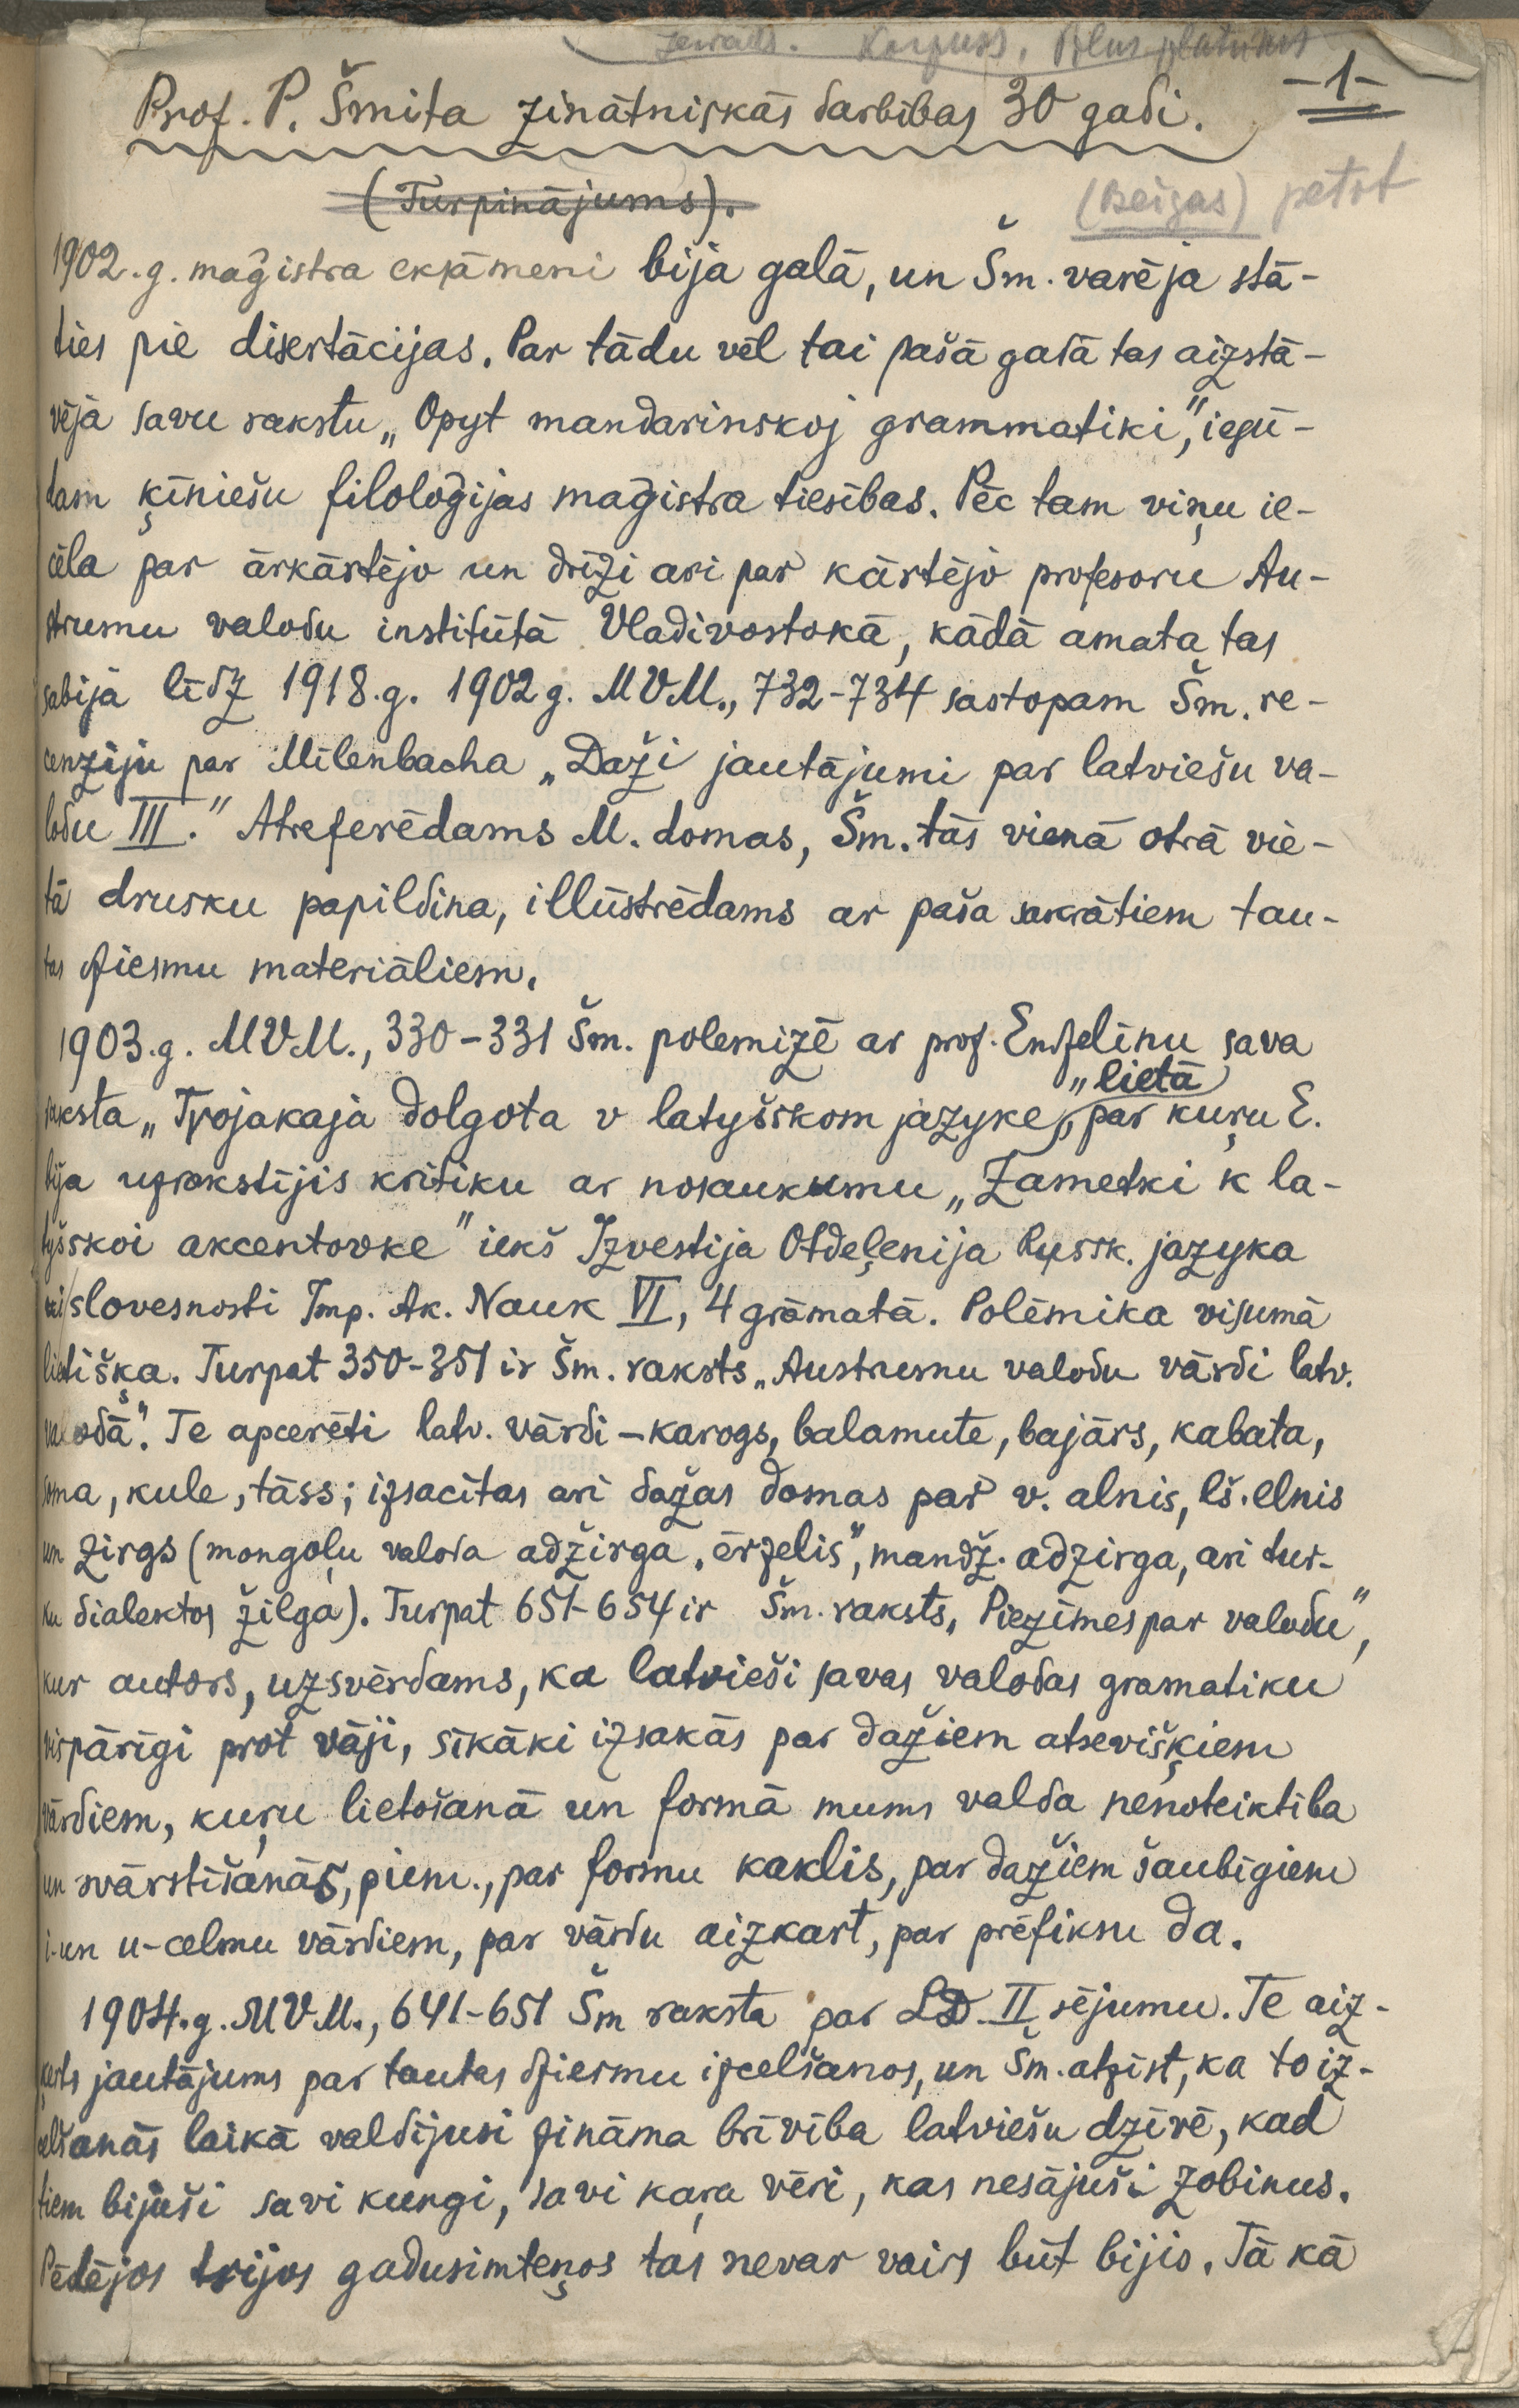 Korpuss,
Prof. P. Šmita zinātniskās darbības 30 gadi.
-1-
(Turpinājums).
(Beigas)
1902.g. maģistra eksāmeni bija galā, un Šm. varēja stā-
ties pie disertācijas. Par tādu vēl tai pašā gadā tas aizstā-
vēja savu rakstu „Opyt mandarinskoj grammatiki,” iegū-
dam ķīniešu filoloģijas maģistra tiesības. Pēc tam viņu ie-
cēla par ārkārtējo un drīzi ari par kārtējo profesoru Au-
strumu valodu institūtā Vladivostokā, kādā amata tas
sabija līdz 1918.g. 1902g. MVM., 732-734 sastopam Šm. re-
cenziju par Mīlenbacha „Daži jautājumi par latviešu va-
lodu III.” Atreferēdams M. domas, Šm. tās vienā otrā vie-
tā drusku papildina, illūstrēdams ar paša sakrātiem tau-
tas dziesmu materiāliem.
1903.g. MVM., 330-331 Šm. polemizē ar prof. Endzelīnu sava
„lietā
raksta „Trojakaja dolgota v latyšskom jazyke”, par kuŗu E.
bija uzrakstījis kritiku ar nosaukumu „Zametki k la-
tyšskoi akcentovke” iekš Izvestija Otdeļenija Russk. jazyka
i slovesnosti Imp. Ak. Nauk VI, 4 grāmatā. Polēmika visumā
lietišķa. Turpat 350-351 ir Šm. raksts „Austrumu valodu vārdi latv.
valodā”. Te apcerēti latv. vārdi – karogs, balamute, bajārs, kabata,
soma, kule, tāss; izsacītas ari dažas domas par v. alnis, lš. elnis
un zirgs (mongoļu valoda adžirga „ērzelis”, mandž. adzirga, ari tur-
ku dialektos žilga). Turpat 651-654 ir Šm. raksts, Piezīmes par valodu”,
kur autors, uzsvērdams, ka latvieši savas valodas gramatiku
vispārīgi prot vāji, sīkāki izsakās par dažiem atsevišķiem
vārdiem, kuŗu lietošanā un formā mums valda nenoteiktība
un svārstīšanās, piem., par formu kaklis, par dažiem šaubīgiem
i-un u-celmu vārdiem, par vārdu aizkart, par prēfiksu da.
1904.g. MVM., 641-651 Šm raksta par LD. II sējumu. Te aiz-
ķerts jautājums par tautas dziesmu izcelšanos, un Šm. atzīst, ka to iz-
celšanās laikā valdījusi zināma brīvība latviešu dzīvē, kad
tiem bijuši savi kungi, savi kaŗa vīri, kas nesājuši zobinus.
Pēdējos trijos gadusimteņos tas nevar vairs būt bijis. Tā kā